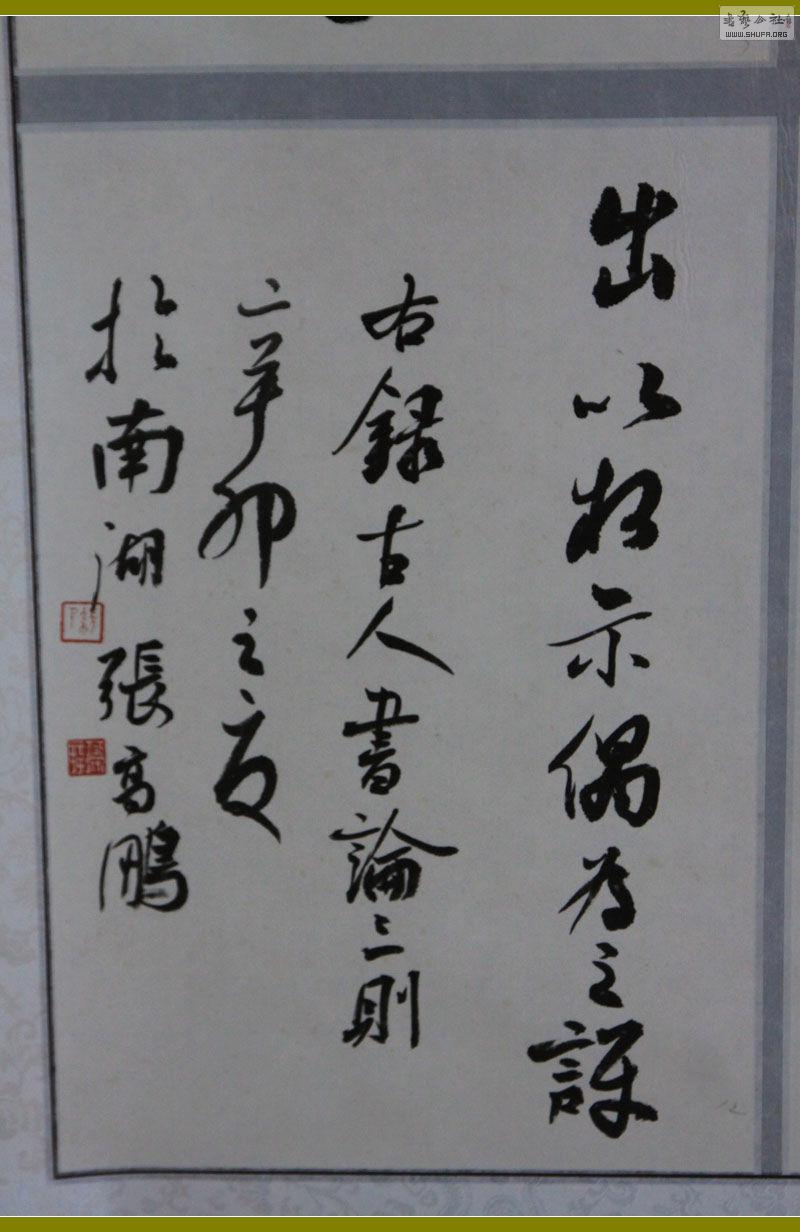 書藝公社
WWW.SHUFA.ORG
出以相示偶為之評
右錄古人書論三則
辛卯之夏
於南湖張高鵬